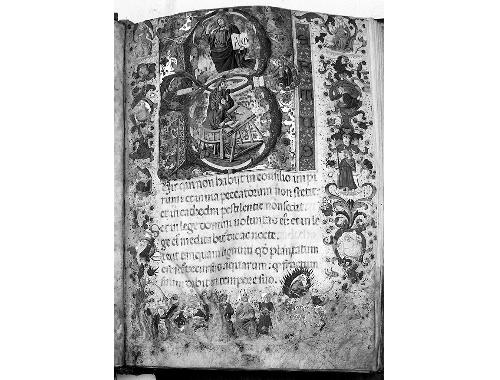 B
vir qui non habiit in consilio impi
orum et in via peccatorum non stetit
et in cathedra pestilentie non sedit.
in lege domini voluntas ei: et in le
ge ei medita bit die ac nocte.
tanquam lignum qd plantatum
secus aquarum: qd fructum
dabit in tempore suo.